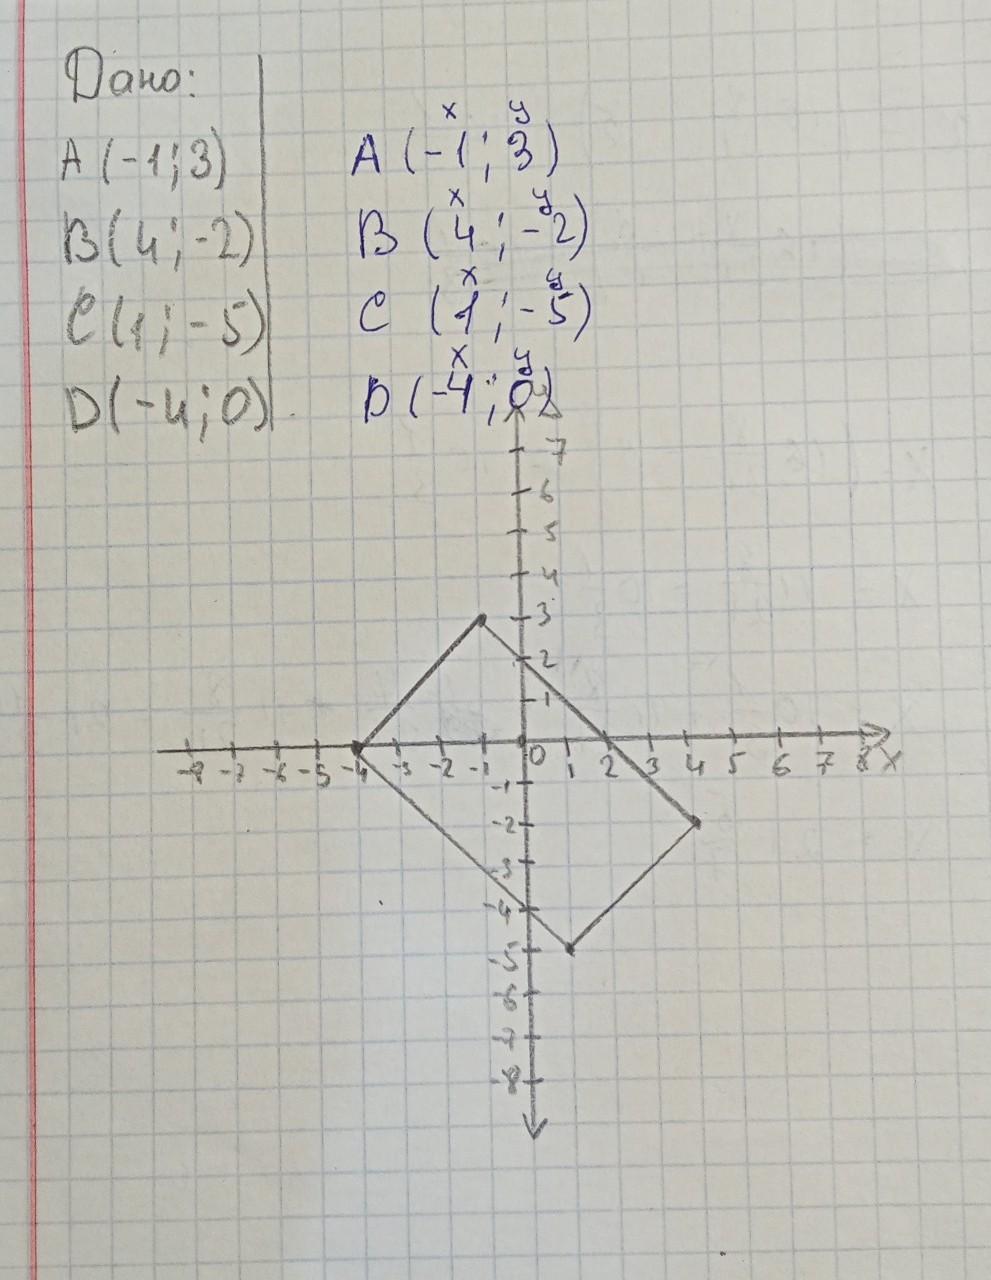 Дано:
A (-1; 3)
B (4; -2)
C (1; -5)
D (-4; 0)
x y
A (-1; 3)
x y
B (4; -2)
x y
C (1; -5)
x y
D (-4; 0)
y
7
6
5
4
3
2
1
-8 -7 -6 -5 -4 -3 -2 -1 0 1 2 3 4 5 6 7 8 x
-1
-2
-3
-4
-5
-6
-7
-8